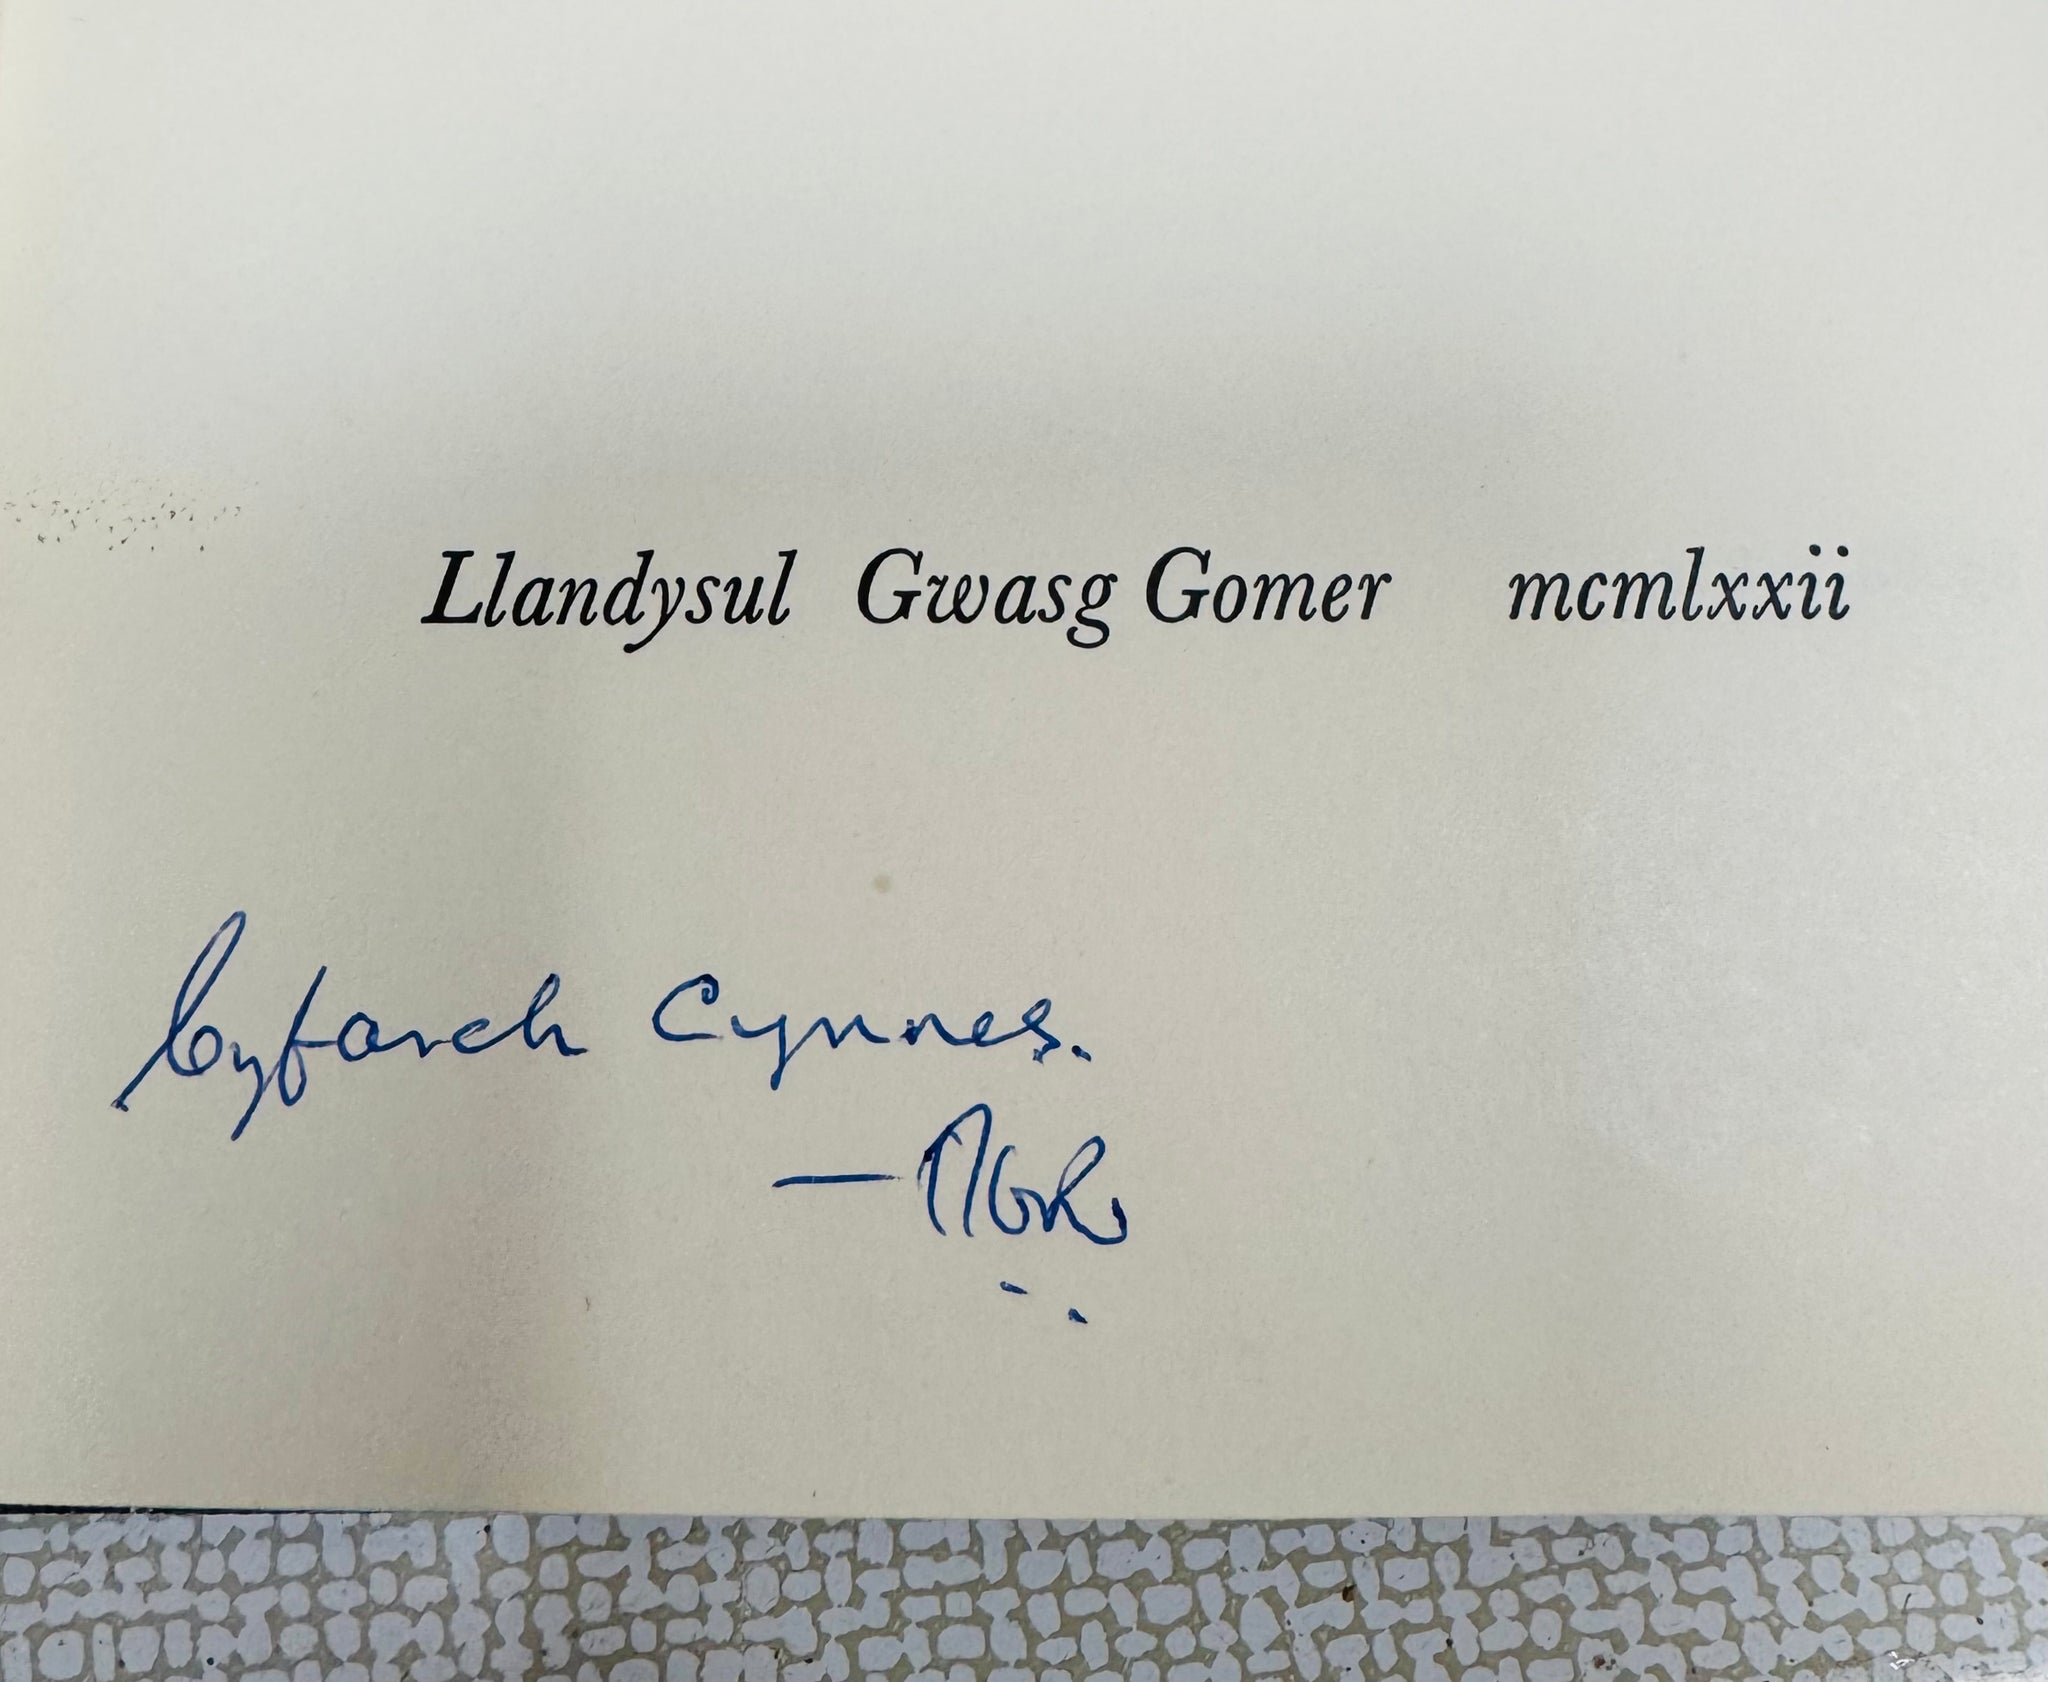 Llandysul Gwasg Gomer mcmlxxii
Cyfarch Cynnes.